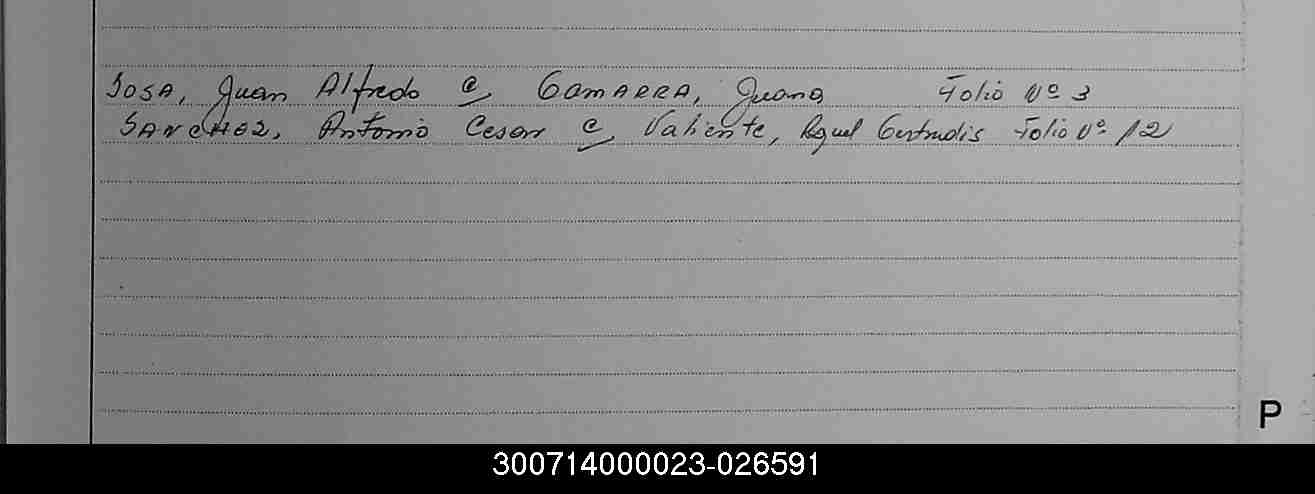 SOSA, Juan Alfredo C/ GAMARRA, Juana Folio Nº 3
SANCHEZ, Antonio Cesar C/ Valiente, Raquel Gertrudis Folio Nº 12
P
300714000023-026591